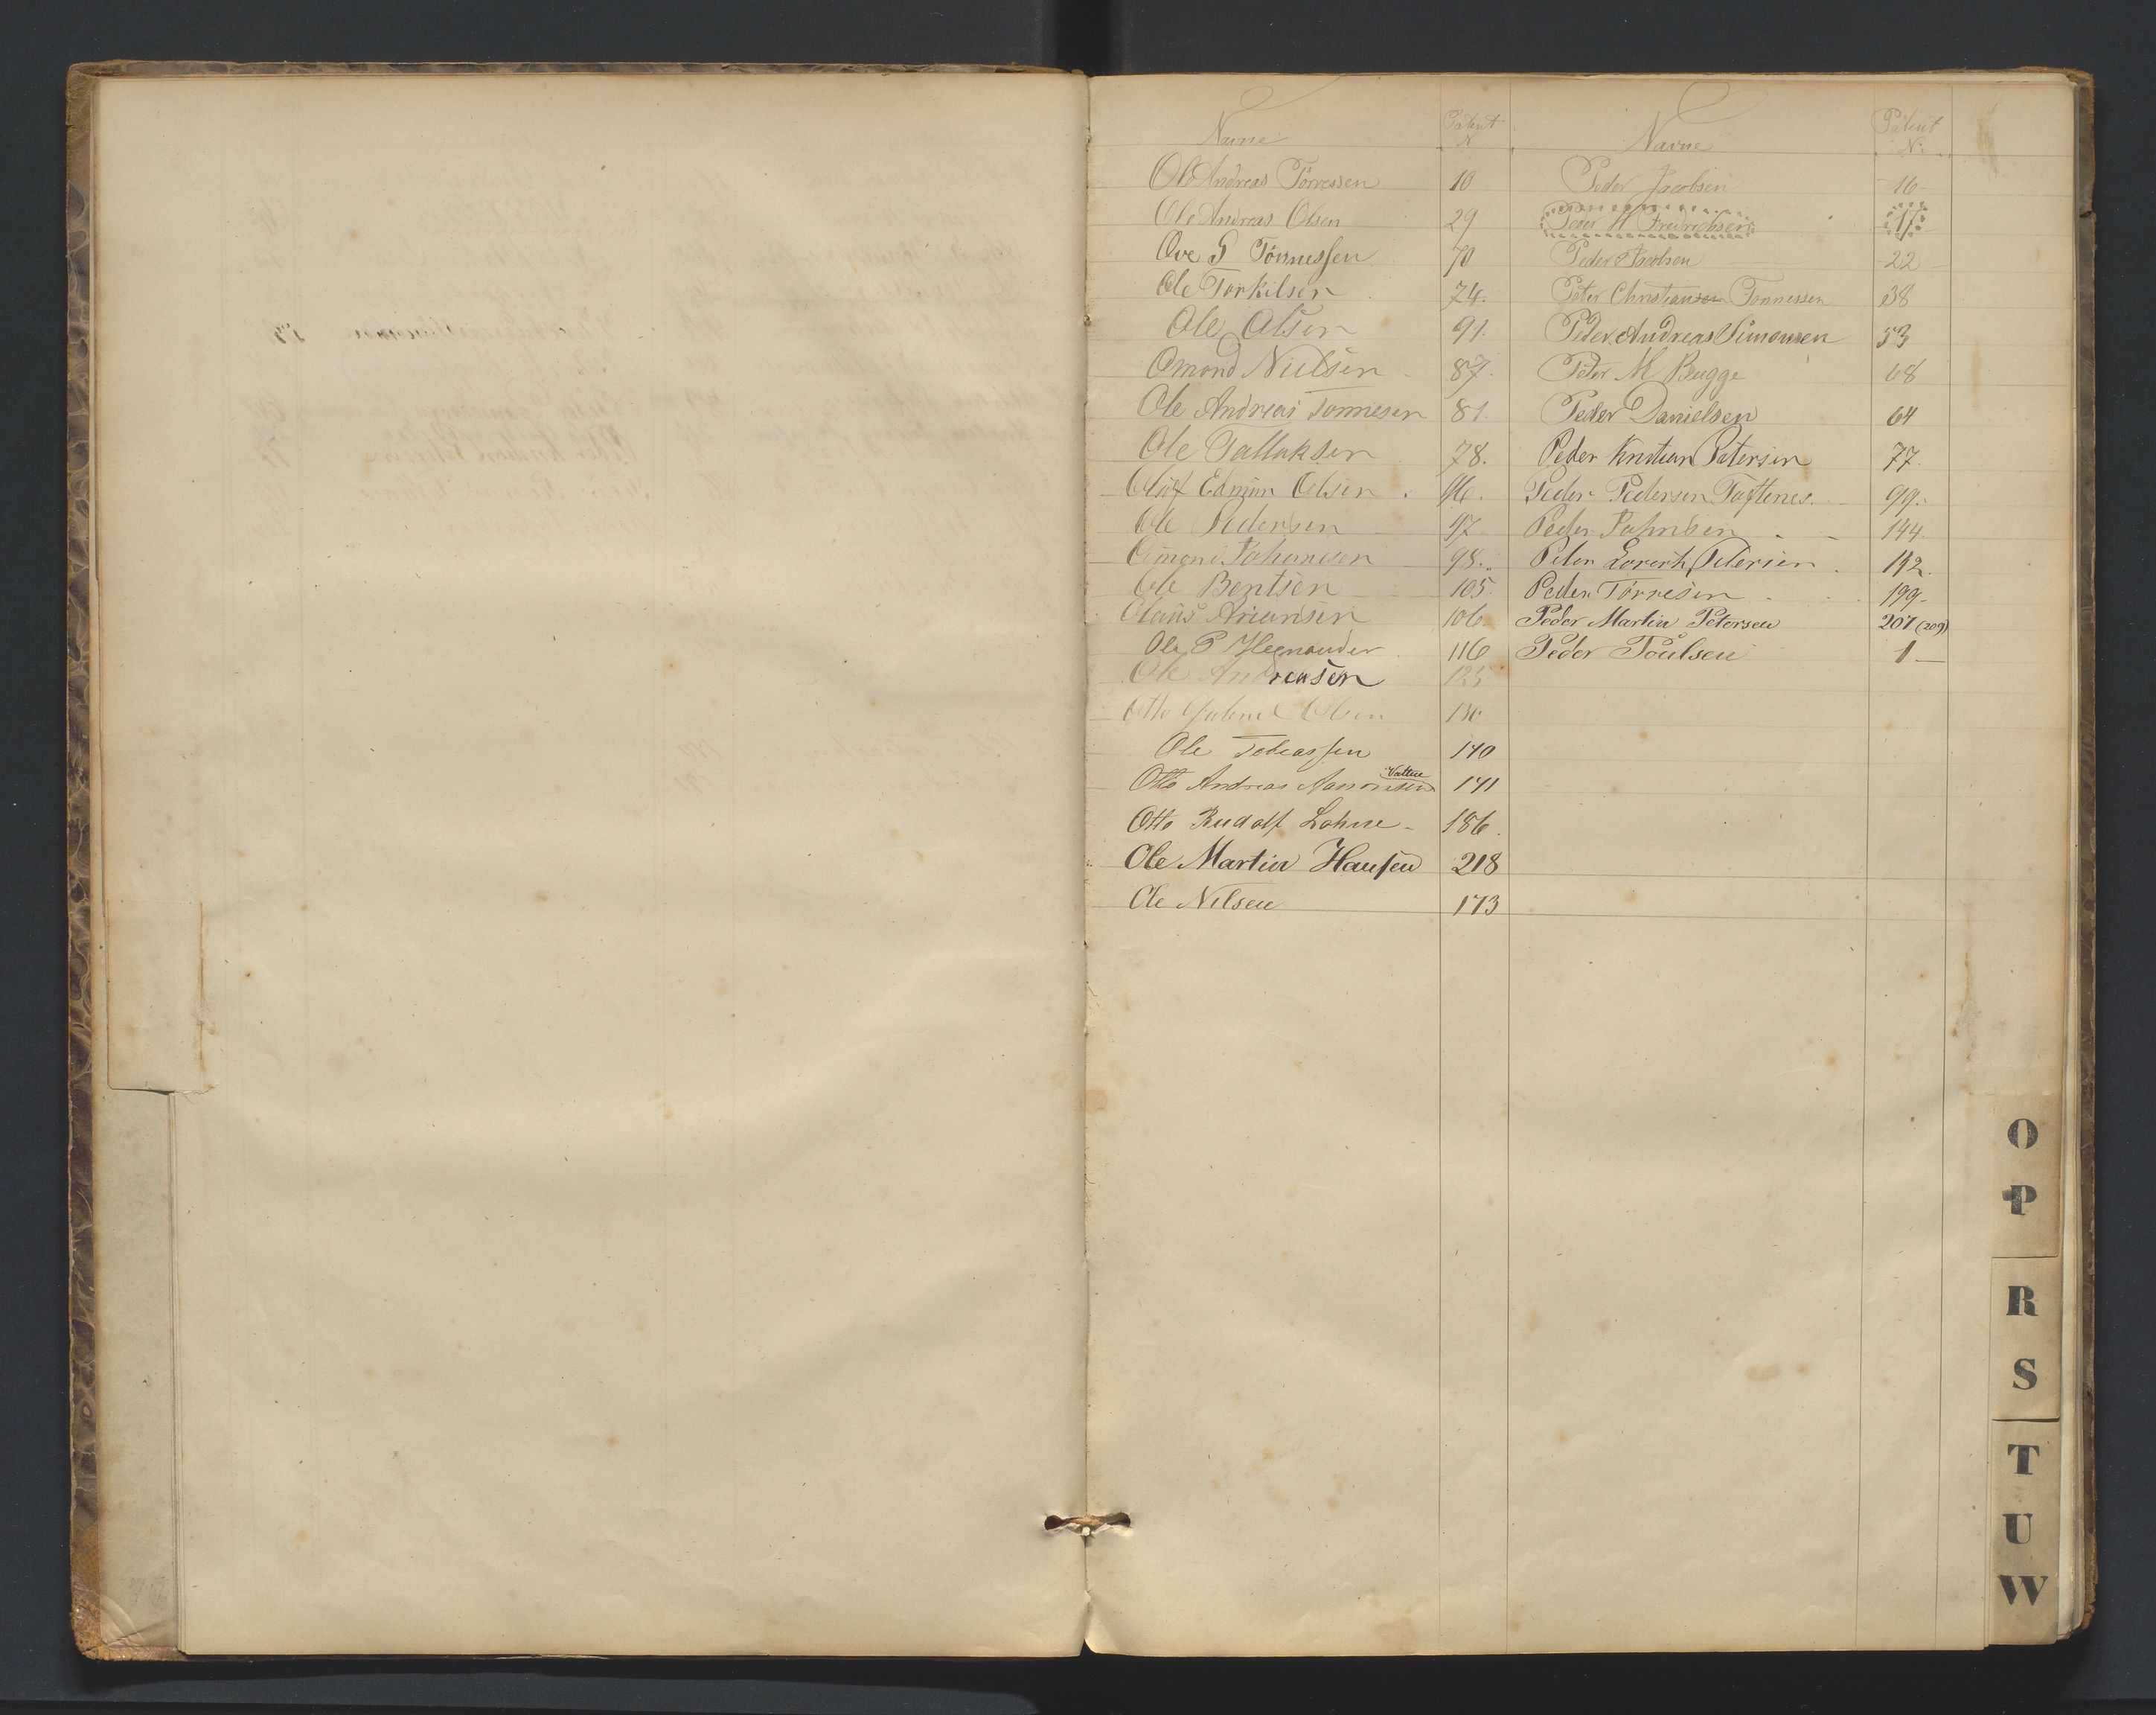 Navne Patent N Navne Patent N.
Ole Andreas Tönnessen 10 Peder Jacobsen 16
Ole Andreas Olsen 29 Peder H Fredrichsen
Ove G Tönnessen 70 Peder Jacobsen 22
Ole Torkilsen 74. Peter Christiansen Tonnessen 38
Ole Olsen 91. Peder Andreas Simonsen 53
Omond Nielsen 87. Peter M Bugge 68
Ole Andreas Tonnesen 81. Peder Danielsen 64
Ole Tallaksen 78. Peder Kristian Petersen 77.
Edmin Olsen 96. Peder Pedersen 99.
Ole Pedersen 97 Peder 144.
Omond Johannesen 98. Peter Petersen 192.
Ole Bentsen 105. Peder Törresen 199
Olaus 106 Peder Martin Petersen 207 (209)
Ole P 116 Peder Poulsen 1
Ole Andreasen 125.
Otto Gabriel Olsen
Ole Tobiassen 140
Otto Andreas 141
Otto Rudolf Lohne 186.
Ole Martin Hansen 218
Ole Nilsen 173
O
P
R
S
T
U
W